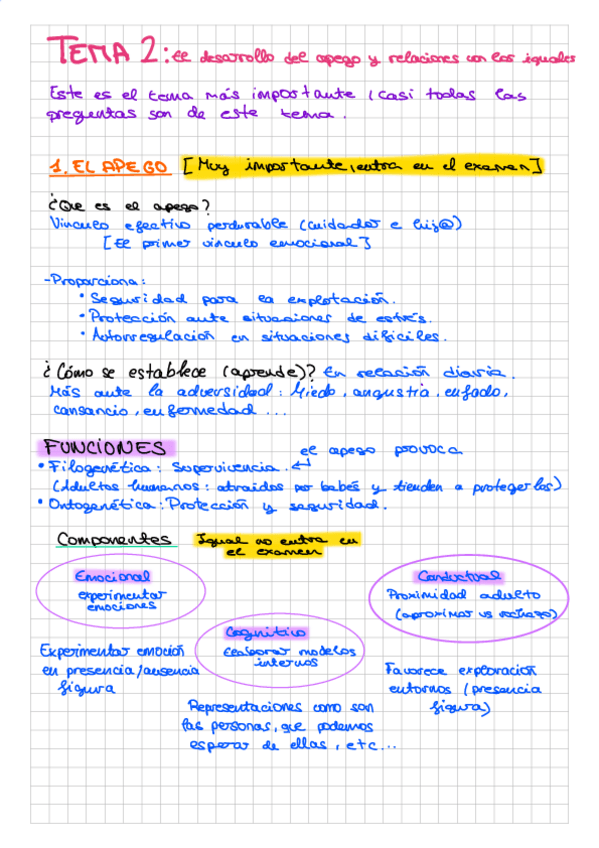 TEMA 2: el desarrollo del apego y relaciones con los iguales
Este es el tema más importante, casi todas las
preguntas son de este tema.
1. EL APEGO [Muy importante, entra en el examen]
¿Que es el apego?
Vinculo efectivo perdurable (cuidador e hij@)
[El primer vinculo emocional]
-Proporciona:
• Seguridad para la explotación.
• Protección ante situaciones de estrés.
• Autorregulación en situaciones dificiles.
¿Cómo se establece (aprende)? En relación diaria.
Más ante la adversidad: Miedo, angustia, enfado,
cansancio, enfermedad ...
FUNCIONES
el apego provoca
• Filogenética: Supervivencia. ↵
(Adultos humanos: atraidos por bebés y tienden a protegerlos)
• Ontogenética: Protección y seguridad.
Componentes
Igual no entra en
el examen
Emocional
experimentar
emociones
Conductual
Proximidad adulto
(aproximar vs rechazo)
Cognitivo
Elaborar modelos
internos
Experimentar emoción
en presencia/ausencia
figura
Favorece exploración
entornos (presencia
figura)
Representaciones como son
las personas, que podemos
esperar de ellas, etc...